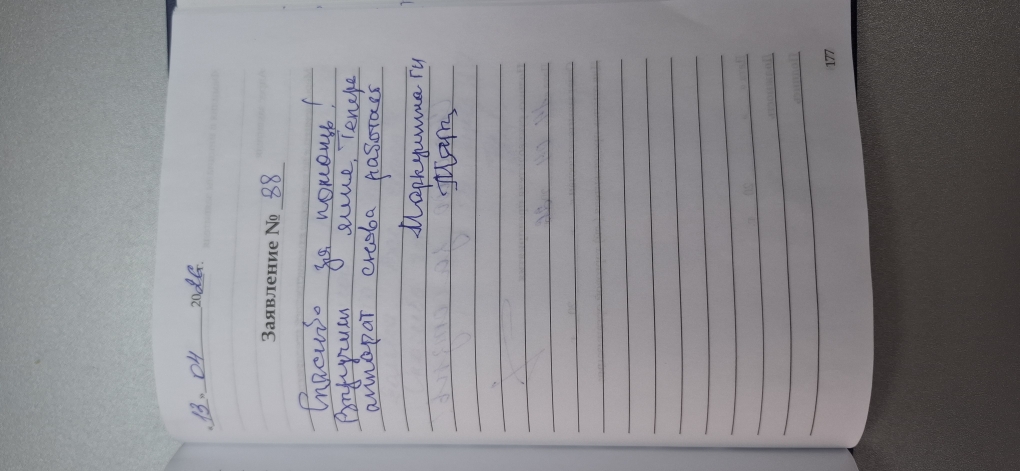 "13" 04 2026г.
Заявление № 88
Спасибо за помощь!
Выручили меня. Теперь
аппарат снова работает
Маркушина ГИ
177